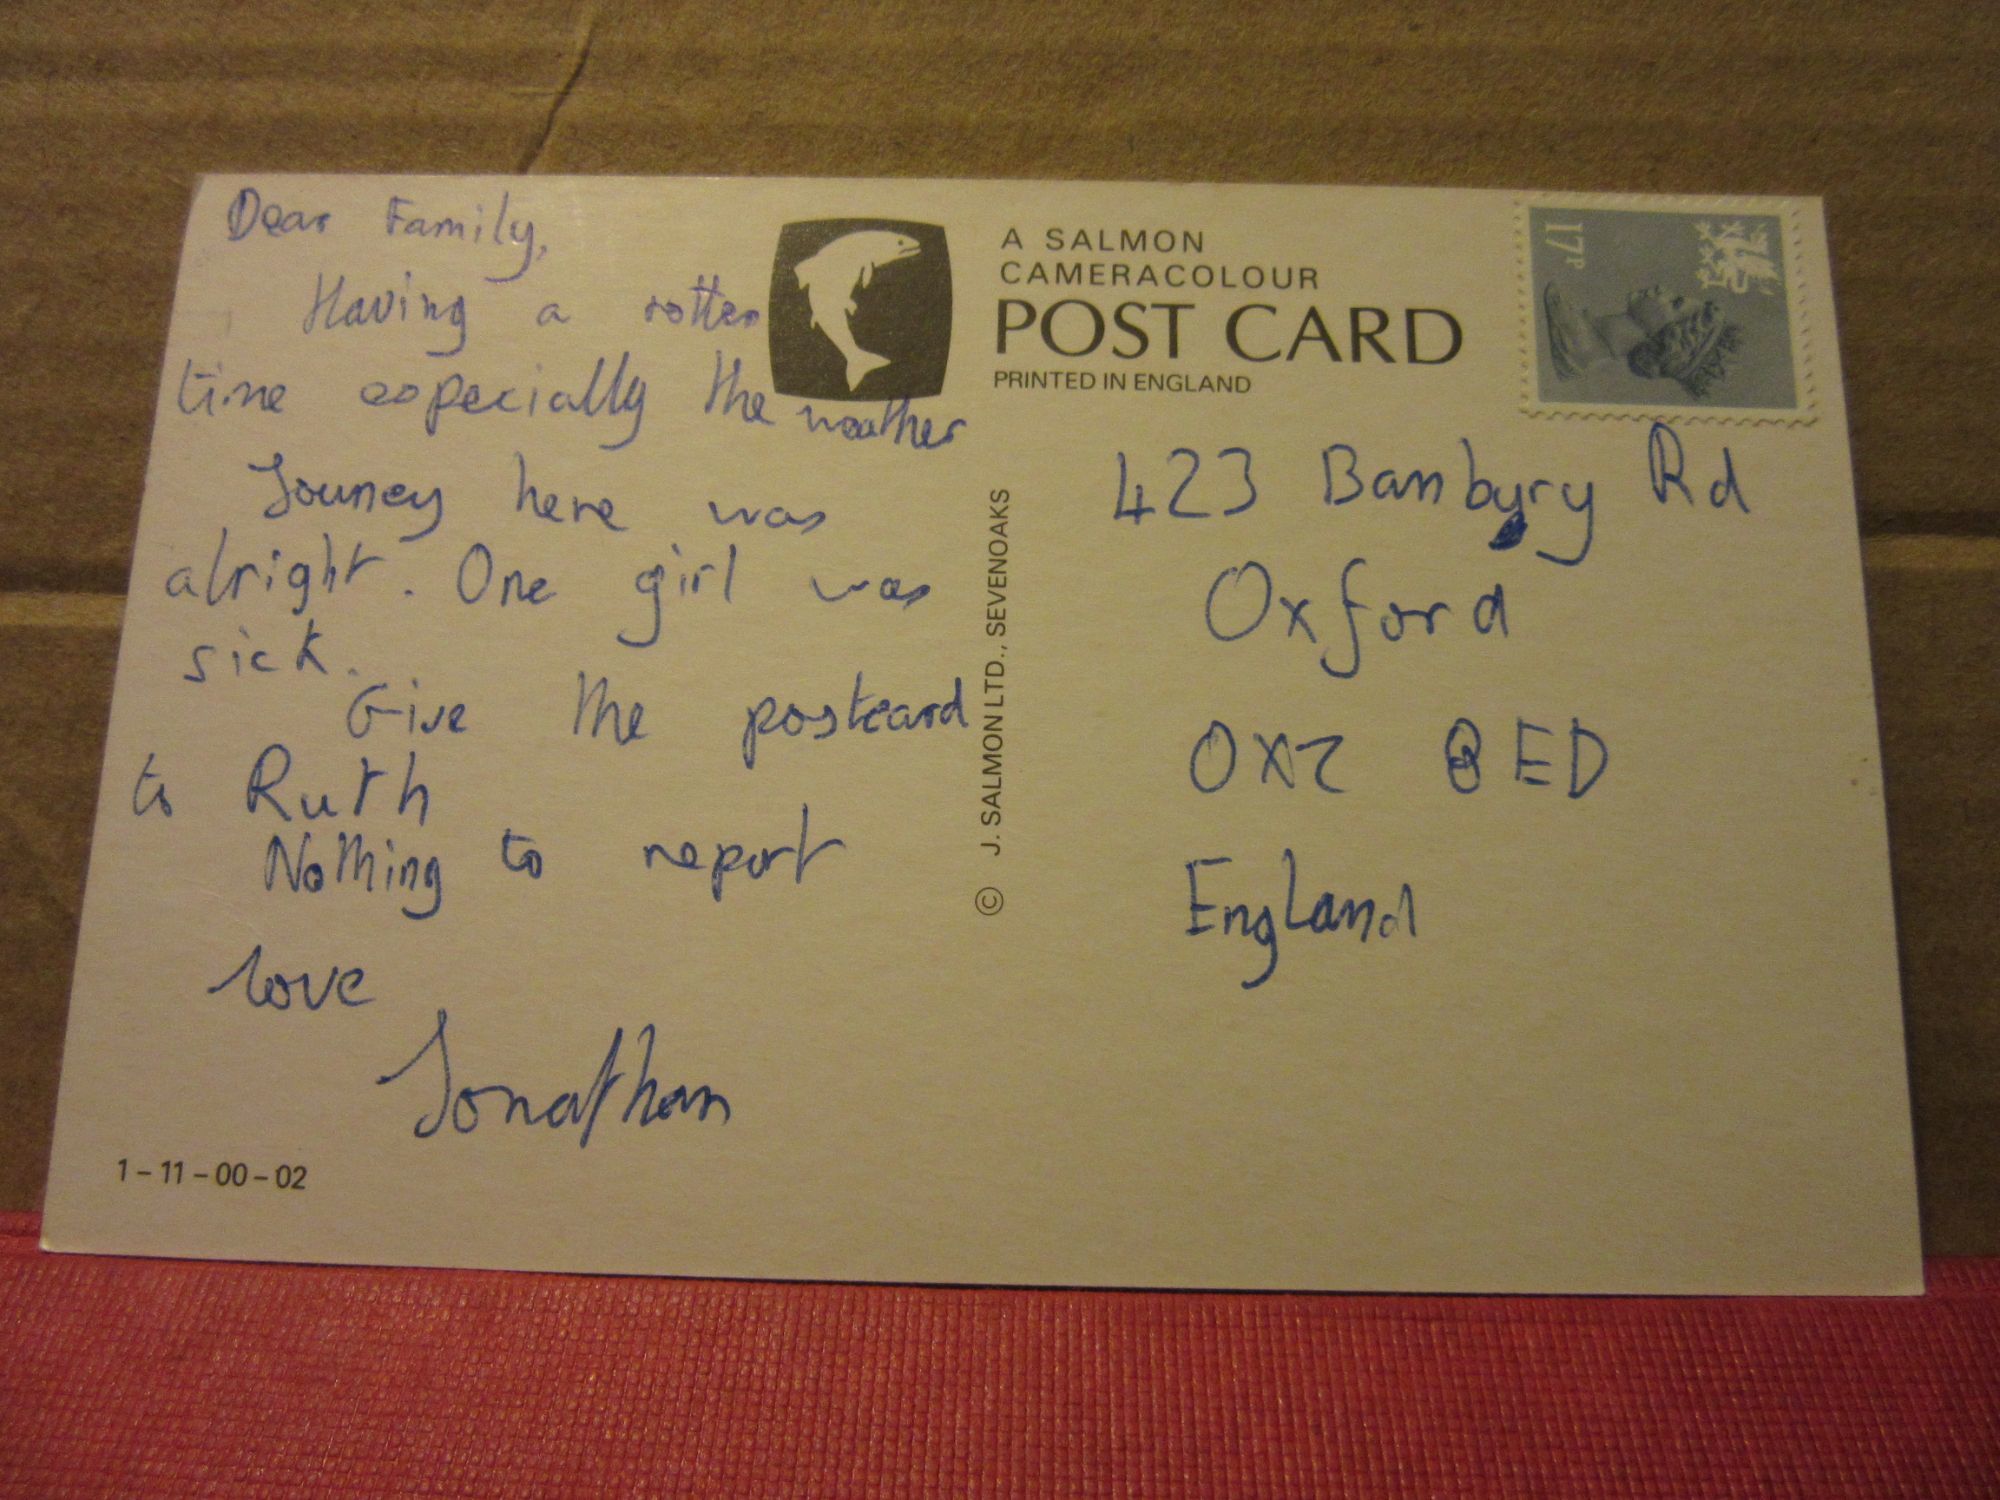 Dear Family,
Having a rotten
time especially the weather
Jouney here was
alright. One girl was
sick.
Give the postcard
to Ruth
Nothing to report
love
Jonathan
1-11-00-02
A SALMON
CAMERACOLOUR
POST CARD
PRINTED IN ENGLAND
© J. SALMON LTD., SEVENOAKS
17P
423 Banbury Rd
Oxford
OX2 8ED
England